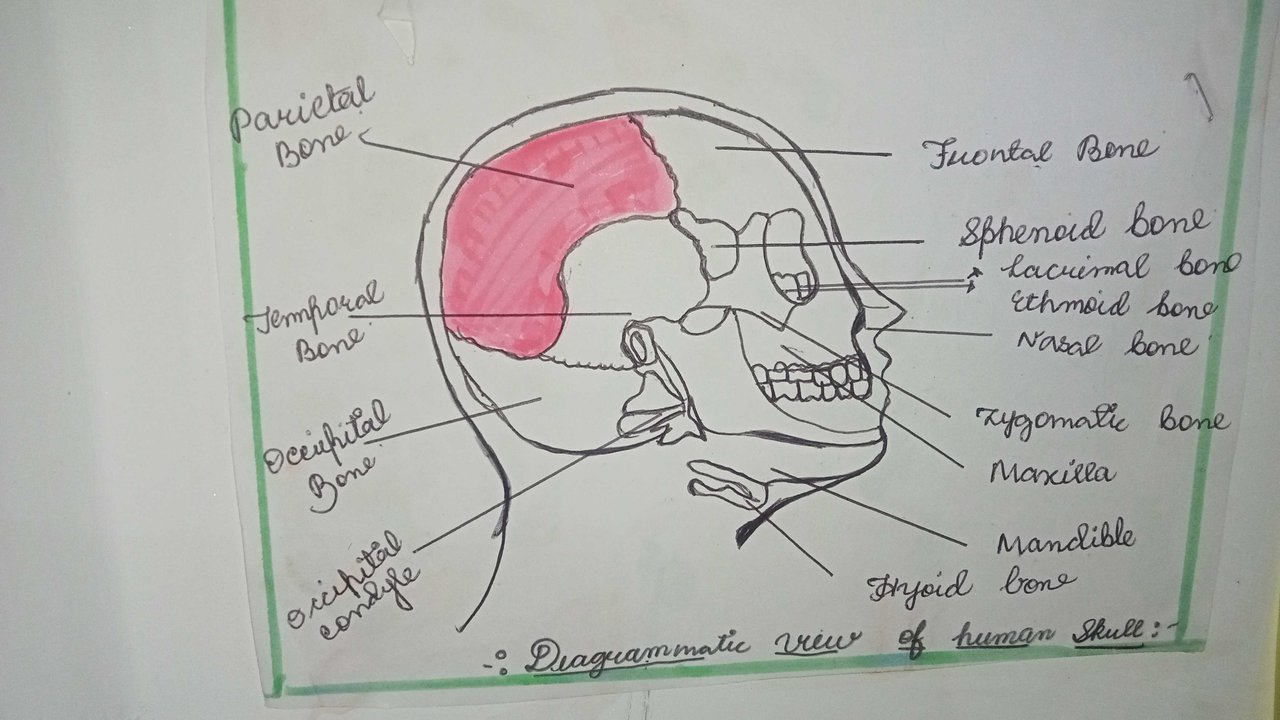 Parietal
Bone
Frontal Bone
Sphenoid bone
Lacrimal bone
Ethmoid bone
Nasal bone
Temporal
Bone
Zygomatic bone
Occipital
Bone
Maxilla
Mandible
Occipital
condyle
Hyoid bone
-:Diagrammatic view of human Skull:-